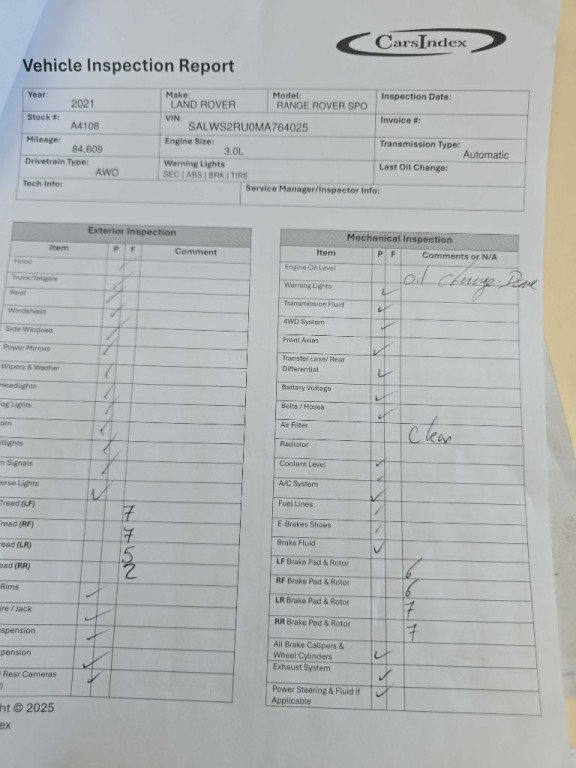 CarsIndex
Vehicle Inspection Report
Year: 2021 Make: LAND ROVER Model: RANGE ROVER SPO Inspection Date:
Stock #: A4108 VIN: SALWS2RU0MA764025 Invoice #:
Mileage: 84,609 Engine Size: 3.0L Transmission Type: Automatic
Drivetrain Type: AWD Warning Lights SEC | ABS | BRK | TIRE Last Oil Change:
Tech Info: Service Manager/Inspector Info:
Exterior Inspection
Item P F Comment
Hood
Trunk/Tailgate
Roof
Windshield
Side Windows
Power Mirrors
Wipers & Washer
Headlights
og Lights
orn
illights
n Signals
erse Lights
Tread (LF) 7
read (RF) 7
ead (LR) 5
ead (RR) 2
Rims
ire / Jack
spension
pension
l Rear Cameras
)
ht © 2025
ex
Mechanical Inspection
Item P F Comments or N/A
Engine Oil Level oil change Done
Warning Lights
Transmission Fluid
4WD System
Front Axles
Transfer case/ Rear
Differential
Battery Voltage
Belts / Hoses
Air Filter Clear
Radiator
Coolant Level
A/C System
Fuel Lines
E-Brakes Shoes
Brake Fluid
LF Brake Pad & Rotor 6
RF Brake Pad & Rotor 6
LR Brake Pad & Rotor 7
RR Brake Pad & Rotor 7
All Brake Calipers &
Wheel Cylinders
Exhaust System
Power Steering & Fluid if
Applicable